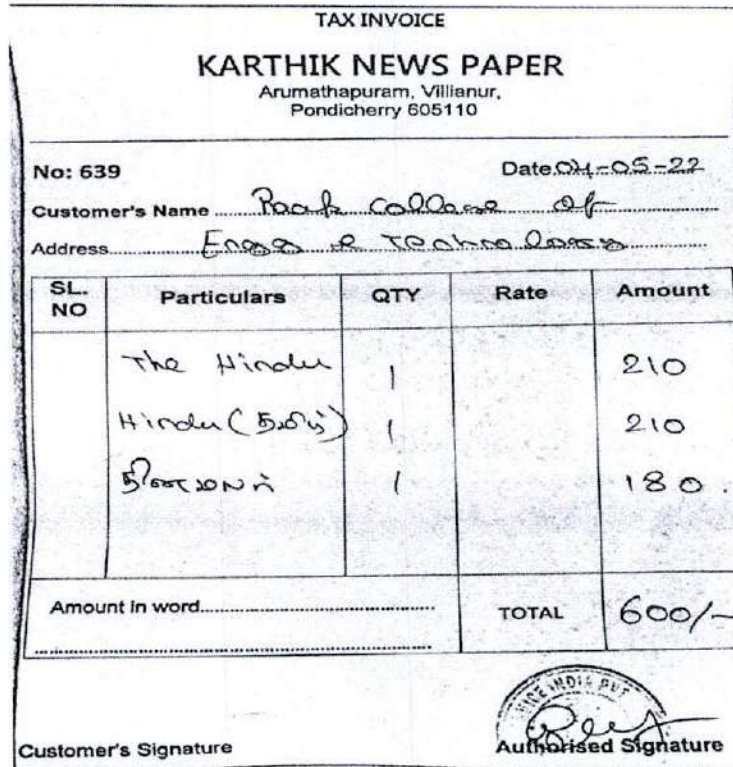 TAX INVOICE
KARTHIK NEWS PAPER
Arumathapuram, Villianur,
Pondicherry 605110
No: 639 Date 04-05-22
Customer's Name College of
Address Engg & Technology
SL. NO Particulars QTY Rate Amount
The Hindu 1 210
Hindu (தமிழ்) 1 210
தினமலர் 1 180.
Amount in word TOTAL 600/-
INDIA PVT
Customer's Signature Authorised Signature